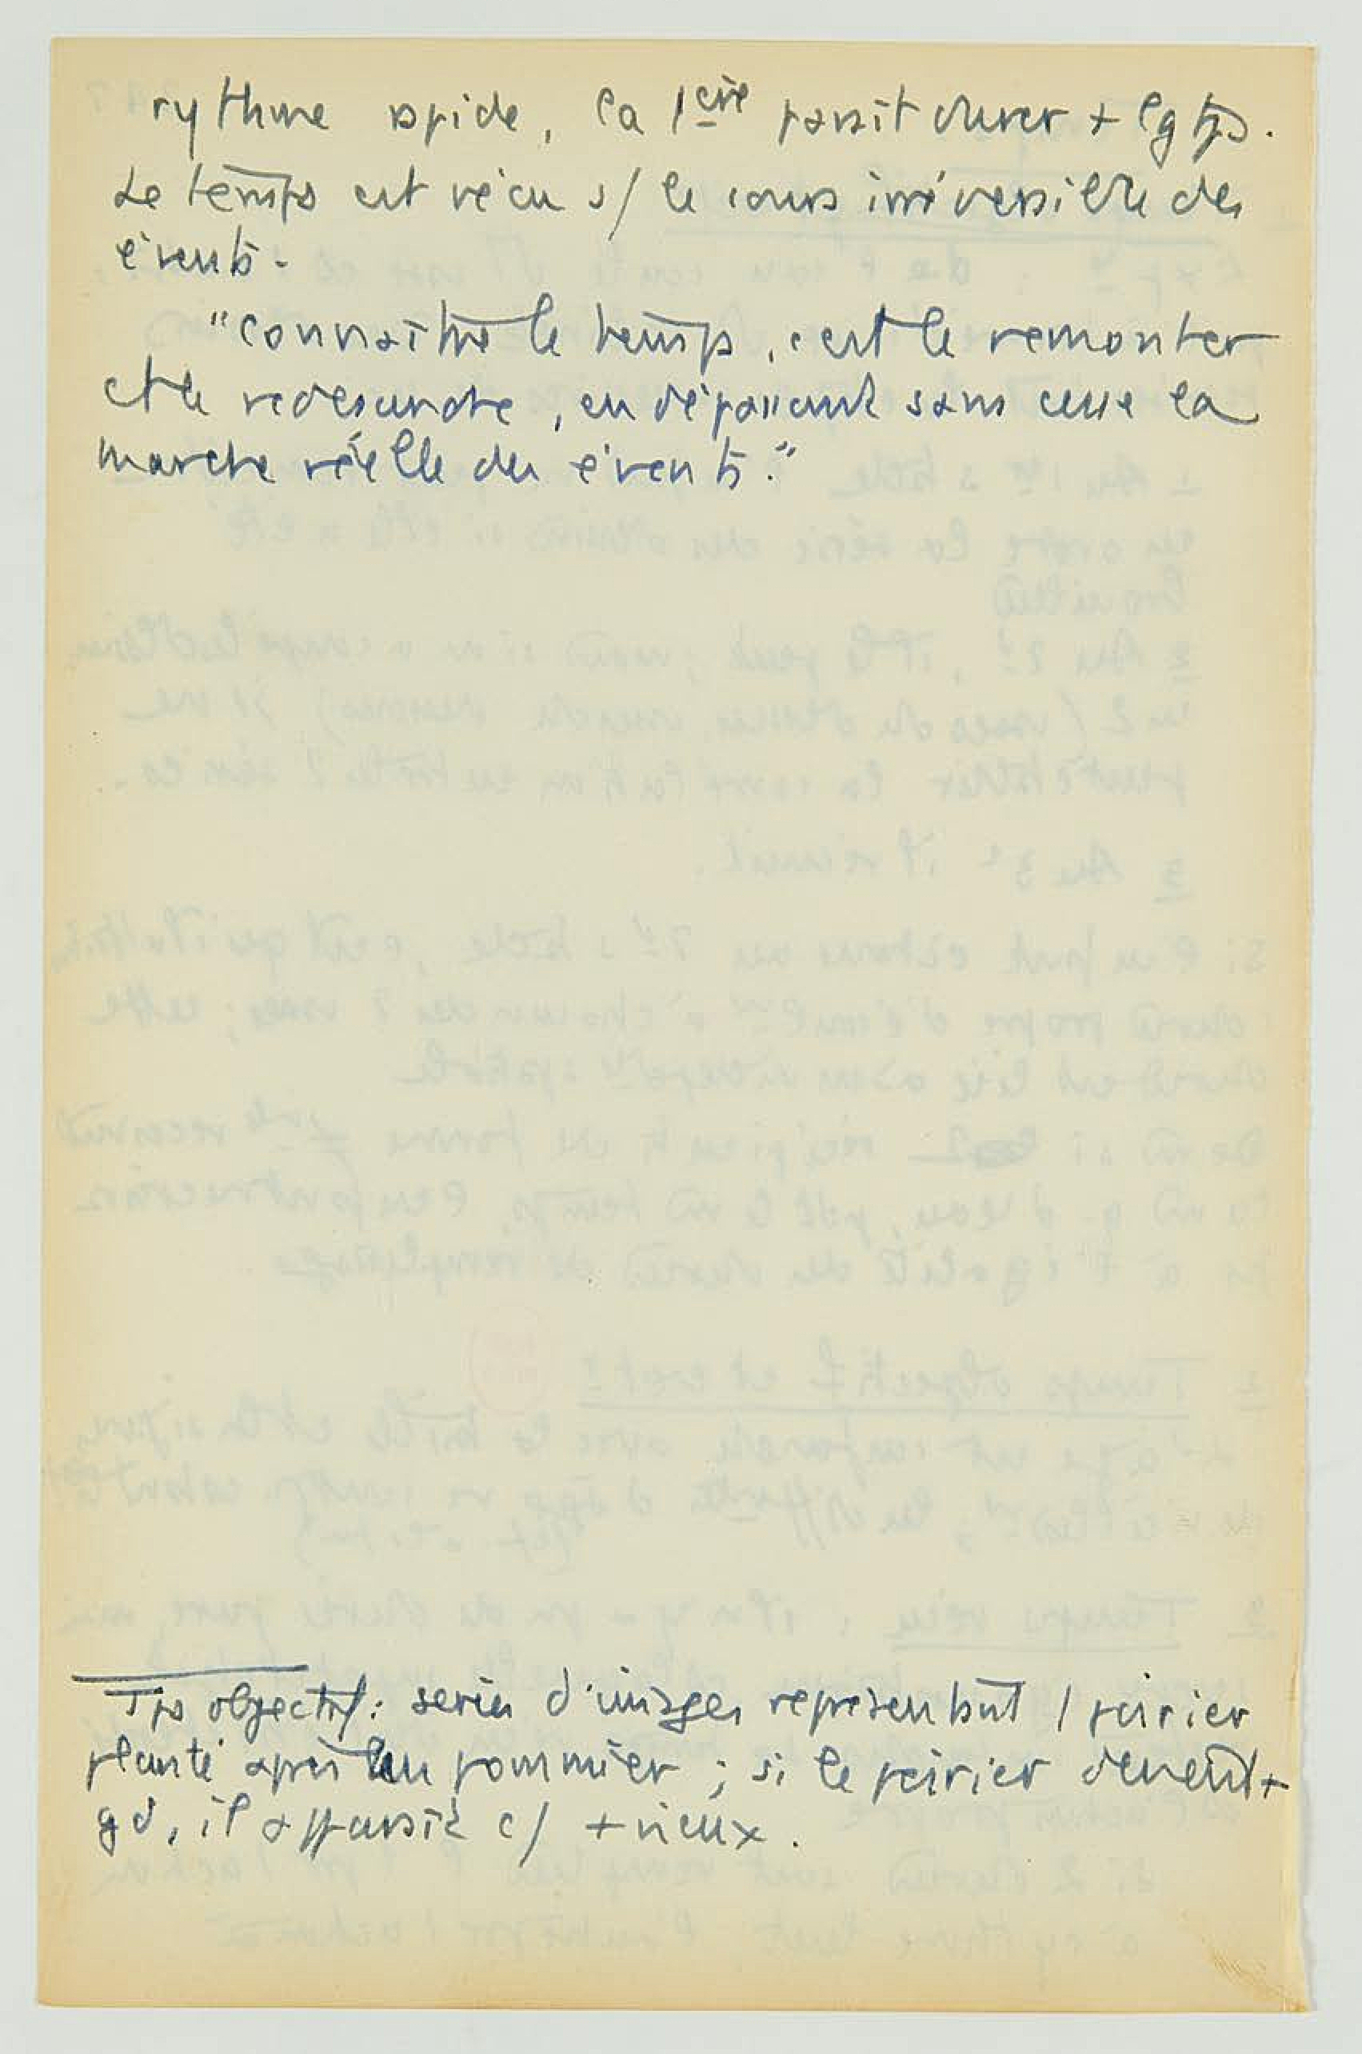 rythme rapide, la 1ère parait durer + lg tps.
Le temps est vécu s/ le cours irréversible des
évents.
"connaître le temps, c'est le remonter
et le redescendre, en dépassant sans cesse la
marche réelle des évents."
Tps objectif : séries d'images représentant 1 poirier
planté après un pommier ; si le poirier devient +
gd, il apparait c/ + vieux.